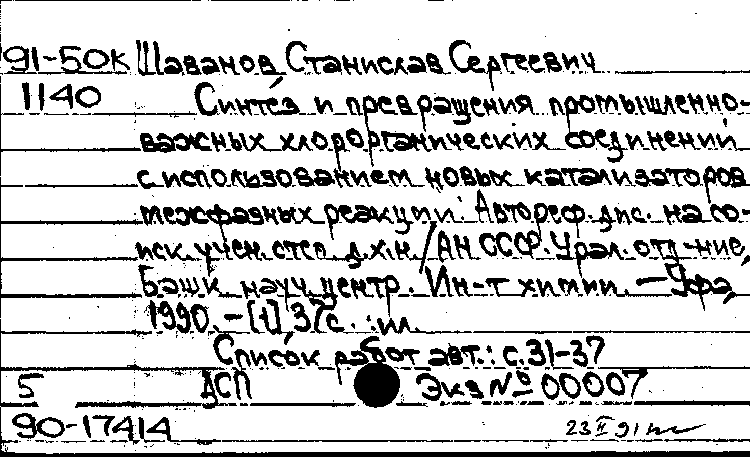 91-50к Шаванов Станислав Сергеевич
1140 Синтез и превращения промышленно-
важных хлорорганических соединений
с использованием новых катализаторов
межфазных реакций: Автореф. дис. на со-
иск. учен. степ. д.х.н. / АН СССР. Урал. отд-ние,
Башк. науч. центр. Ин-т химии. — Уфа,
1990. – [1], 37с. : ил.
Список работ авт.: с. 31-37
5 ДСП Экз № 00007
90-17414 23 II 91